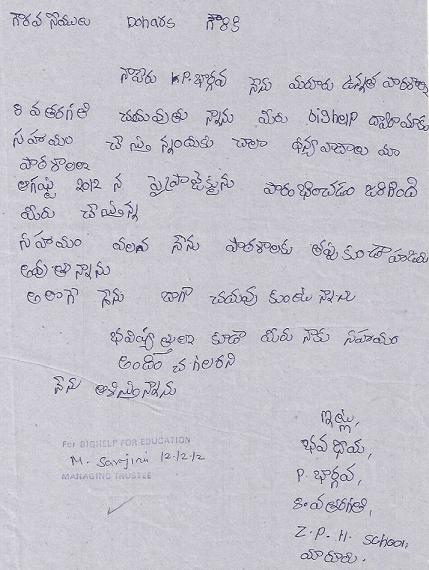 గౌరవనీయులు Dohars గారికి
నాపేరు P. భార్గవ నేను మరూరు ఉన్నత పాఠశాల
8వ తరగతి చదువుతు న్నాను మీరు bigHelp ద్వారా మాకు
సహాయం చేస్తు న్నందుకు చాలా ధన్యవాదాలు మా
పాఠశాలలో
ఆగష్టు 2012 న ప్రైప్రాజెక్ట్ను పారంభించడం జరిగింది
మీరు చేస్తున్న
సహాయం వలన నేను పాఠశాలకు తప్పకుండా హాజరు
అవుతున్నాను
అలాగే నేను బాగా చదువు కుంటు న్నాను
భవిష్యత్తులో కూడా మీరు నాకు సహాయం
అందించ గలరని
నేను ఆశిస్తున్నాను
ఇట్లు,
భవదీయ,
P. భార్గవ,
8వ తరగతి,
Z.P.H. School,
మారూరు.
For BIGHELP FOR EDUCATION
M. Sarojini 12-12-12
MANAGING TRUSTEE